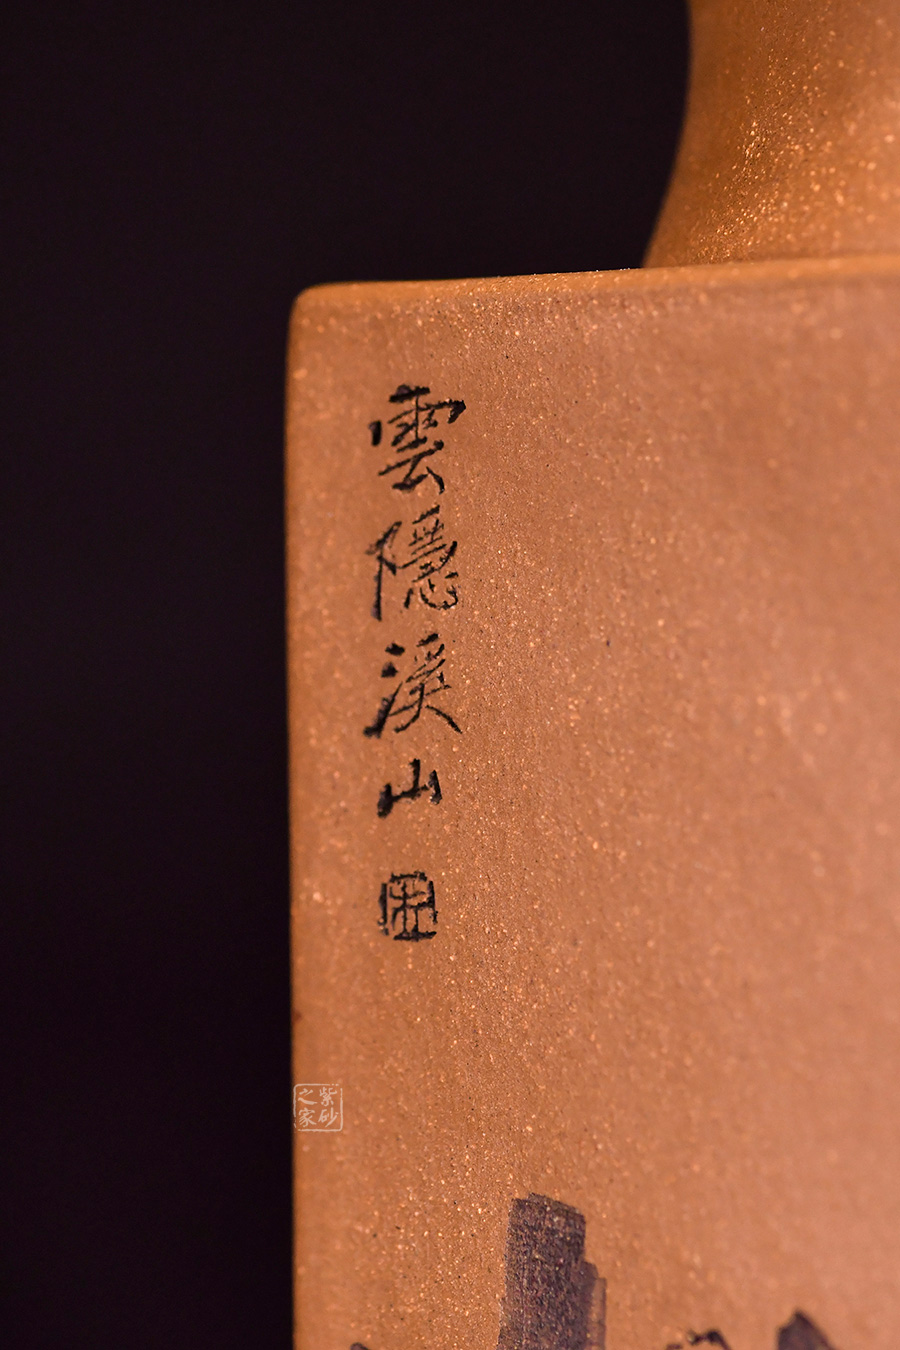 雲隱溪山
紫砂
之家